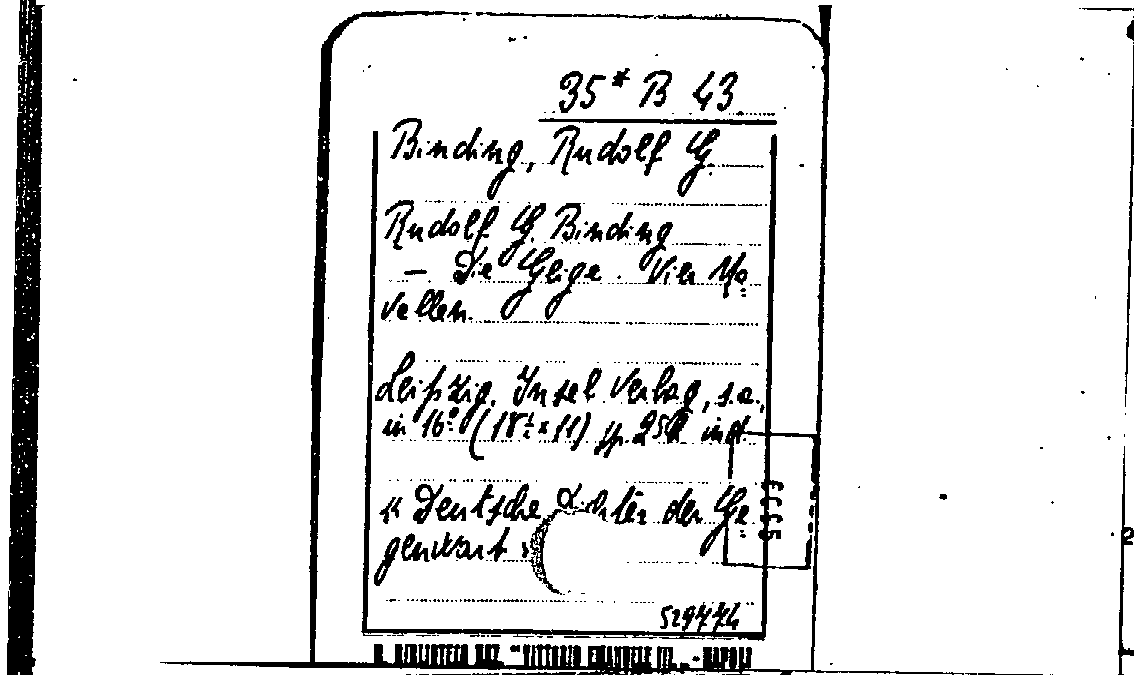 35* B 43
Binding, Rudolf G.
Rudolf G. Binding
— Die Geige. Vier No=
vellen.
Leipzig, Insel Verlag, s.a.,
in 16° (18½ × 11) pp. ind
« Deutsche der Ge=
genwart »
529774
B. BIBLIOTECA NAZ. "VITTORIO EMANUELE III" - NAPOLI